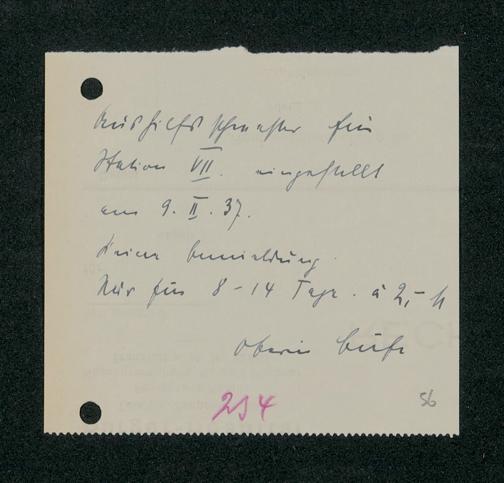 Aushilfsschwester für
Station VII. eingestellt
am 9.II.37.
Keine Anmeldung.
Nur für 8-14 Tage. à 2,- M
Oberin
234
56